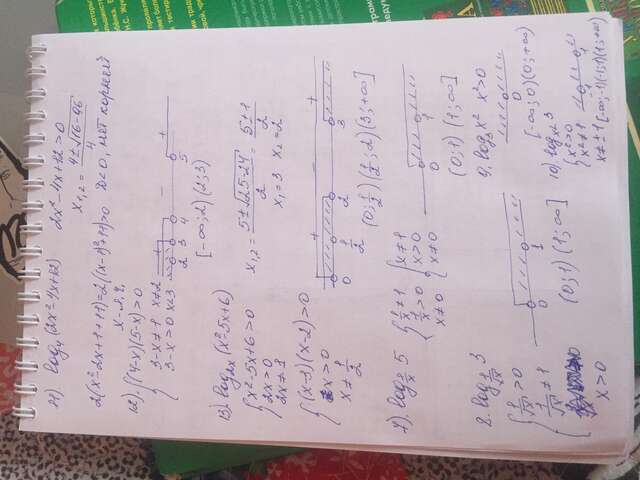 11). log₄(2x²-4x+12)   2x²-4x+12>0
x₁,₂ = (4±√(16-96))/4
2(x²-2x+1+11)=2((x-1)²+11)>0   D<0, нет корней
x-л.ч.
12). {(4-x)(5-x)>0
3-x≠1   x≠2
3-x>0   x<3
+ - +
2 3 4 5
[-∞;2)(2;3)
13). log₂ₓ(x²-5x+6)
{x²-5x+6>0
2x>0
2x≠1
x₁,₂ = (5±√(25-24))/2 = (5±1)/2
x₁=3   x₂=2
{(x-3)(x-2)>0
x>0
x≠1/2
+ - +
0 1/2 2 3
(0;1/2)(1/2;2)(3;+∞]
7). 5   {1/x≠1   {x≠1
1/x>0   x>0
x≠0   x≠0
0 1
(0;1)(1;∞]
8. log 1/√x 3
{1/√x>0
1/√x≠1
x>0
0 1
(0;1)(1;∞]
9. x²   x²>0
0
[-∞;0)(0;+∞)
10). logₓ² 3
{x²>0
x²≠1
x≠±1
-1 1
[-∞;-1)(-1;1)(1;+∞)
которы
ребёнка. Е
Н.С. Жук